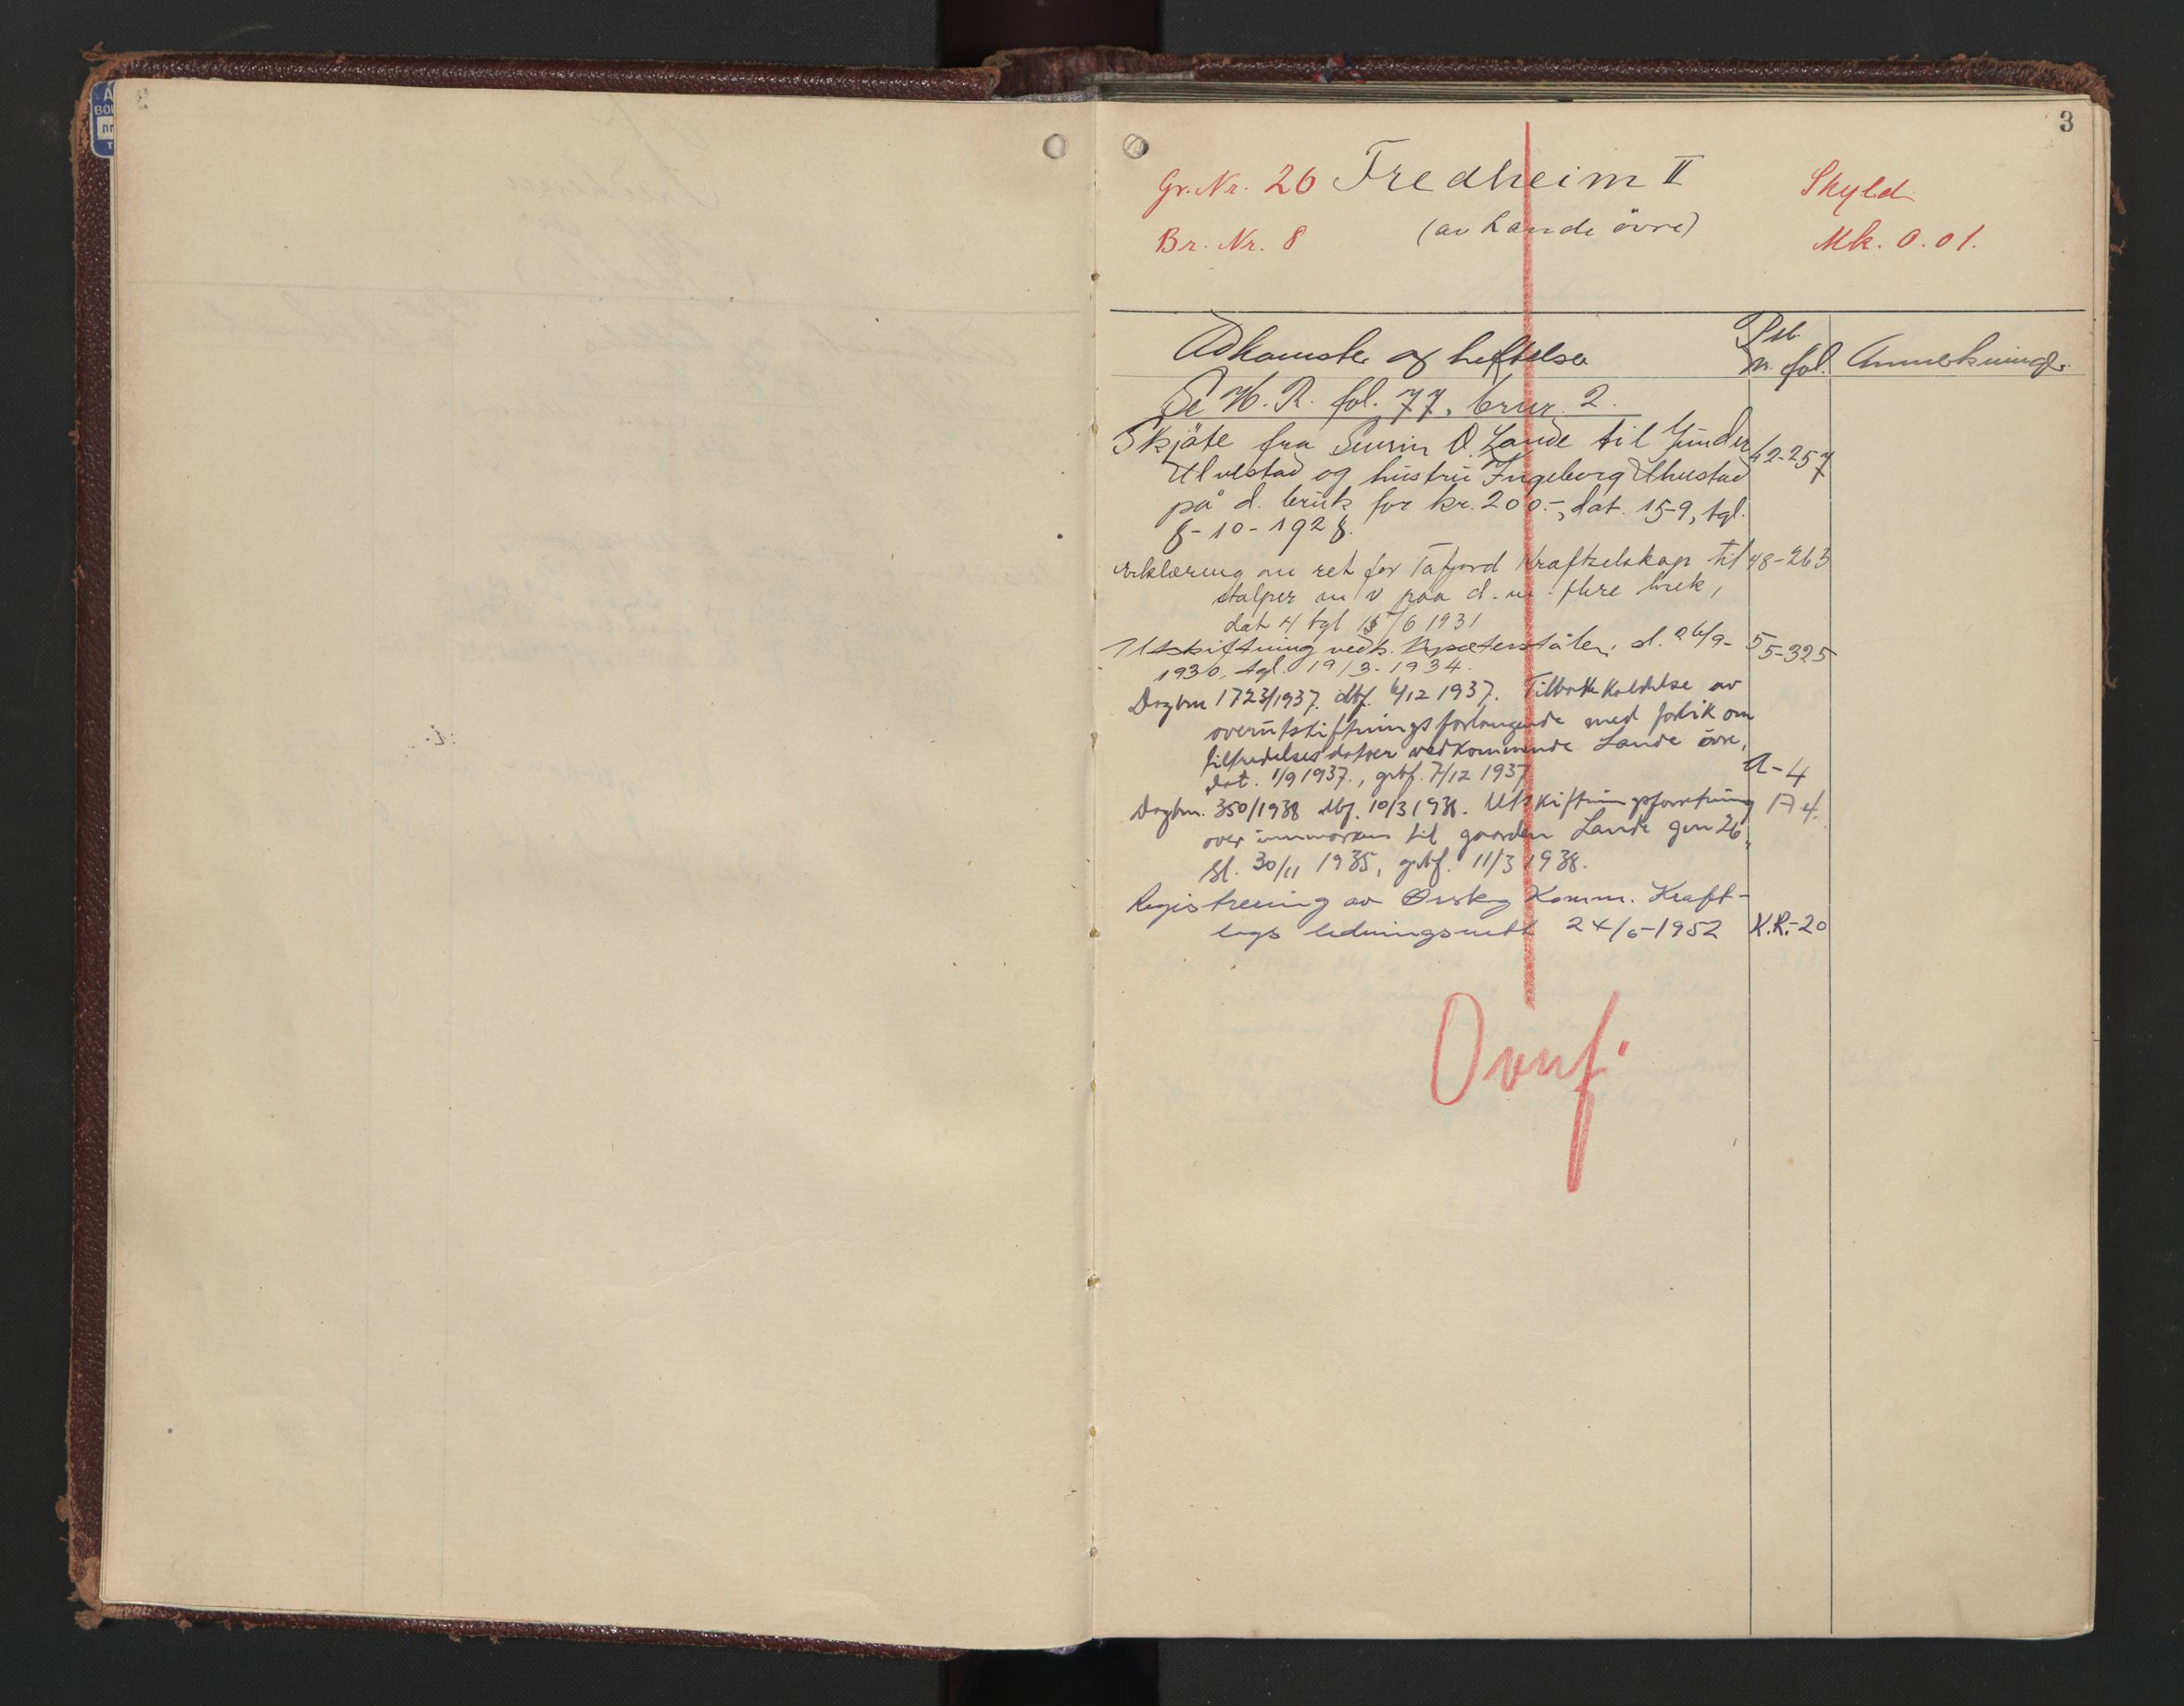 3
Gr. Nr. 26 Fredheim II Skyld
Br. Nr. 8 (av Lande övre) Mk. 0.01.
Adkomster og heftelser Psb. n. fol. Anmerkninger
Se H. R. fol. 77, brnr. 2.
Skjöte fra Severin O. Lande til Gunder 42-257
Ulvestad og hustru Ingeborg Ulvestad
på d. bruk for kr. 200.-, dat. 15-9, tgl.
8-10-1928.
Erklæring om ret for Tafjord Kraftselskap til 48-263
stolper m v paa d. m. flere bruk,
dat 4 tgl 15/6 1931
Utskiftning vedk. sl. 26/9- 55-325
1930, tgl. 19/3-1934.
Dagbnr 1723/1937. dbf. 6/12 1937. Tilbakekaldelse av
overutskiftningsforlangende med forlik om
tiltredelsesdatoer vedkommende Lande övre,
dat. 1/9 1937., grbf. 7/12 1937 A-4
Dagbnr. 350/1938 dbf. 10/3 1938. Utskiftningsforretning A 4.
over innmarken til gaarden Lande gnr 26,
sl. 30/11 1935, grbf. 11/3 1938.
Registrering av Ørskog Komm. Kraft-
lags ledningsnett 24/6-1952 K.R.-20
Overf.